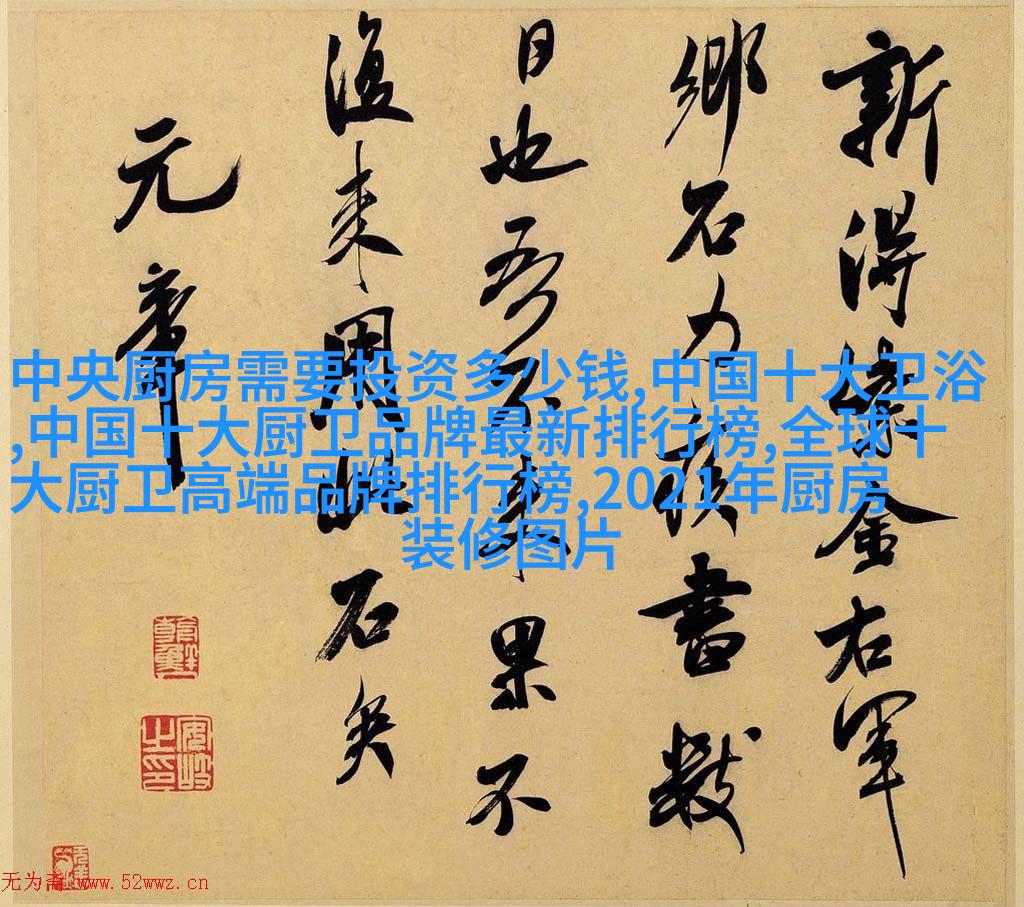 新得紫金右軍
鄉石力疾書數
日也吾不来果不
復来用此石矣
元章
中央厨房需要投资多少钱,中国十大卫浴
,中国十大厨卫品牌最新排行榜,全球十
大厨卫高端品牌排行榜,2021年厨房
装修图片
安岐之印
无为斋 www.52wwz.cn